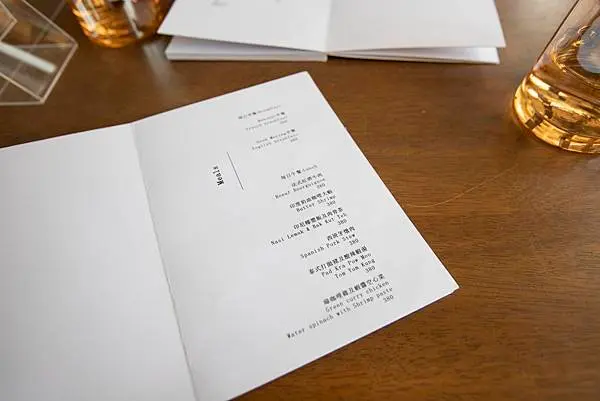 Meals
每日早餐 Breakfast
French breakfast
380
English breakfast
380
每日午餐 Lunch
法式紅酒牛肉
Boeuf Bourguinon
380
印度奶油咖哩大蝦
Butter Shrimp
380
印尼椰漿飯及肉骨茶
Nasi Lemak & Bak Kut Teh
380
西班牙燉肉
Spanish Pork Stew
380
泰式打拋豬及酸辣蝦湯
Pad Kra Pow Moo
Tom Yum Kung
380
綠咖哩雞及蝦醬空心菜
Green curry chicken
Water spinach with Shrimp paste
380